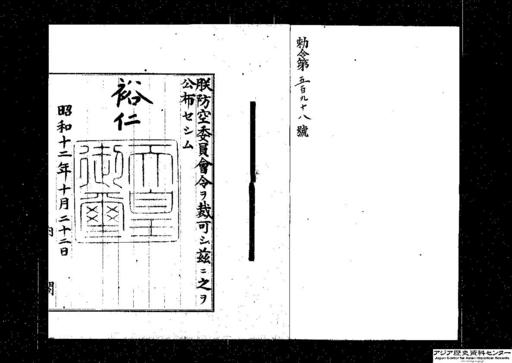 勅令第五百九十八號
朕防空委員會令ヲ裁可シ茲ニ之ヲ
公布セシム
裕仁
天皇
御璽
昭和十二年十月二十二日
内閣
アジア歴史資料センター
Japan Center for Asian Historical Records